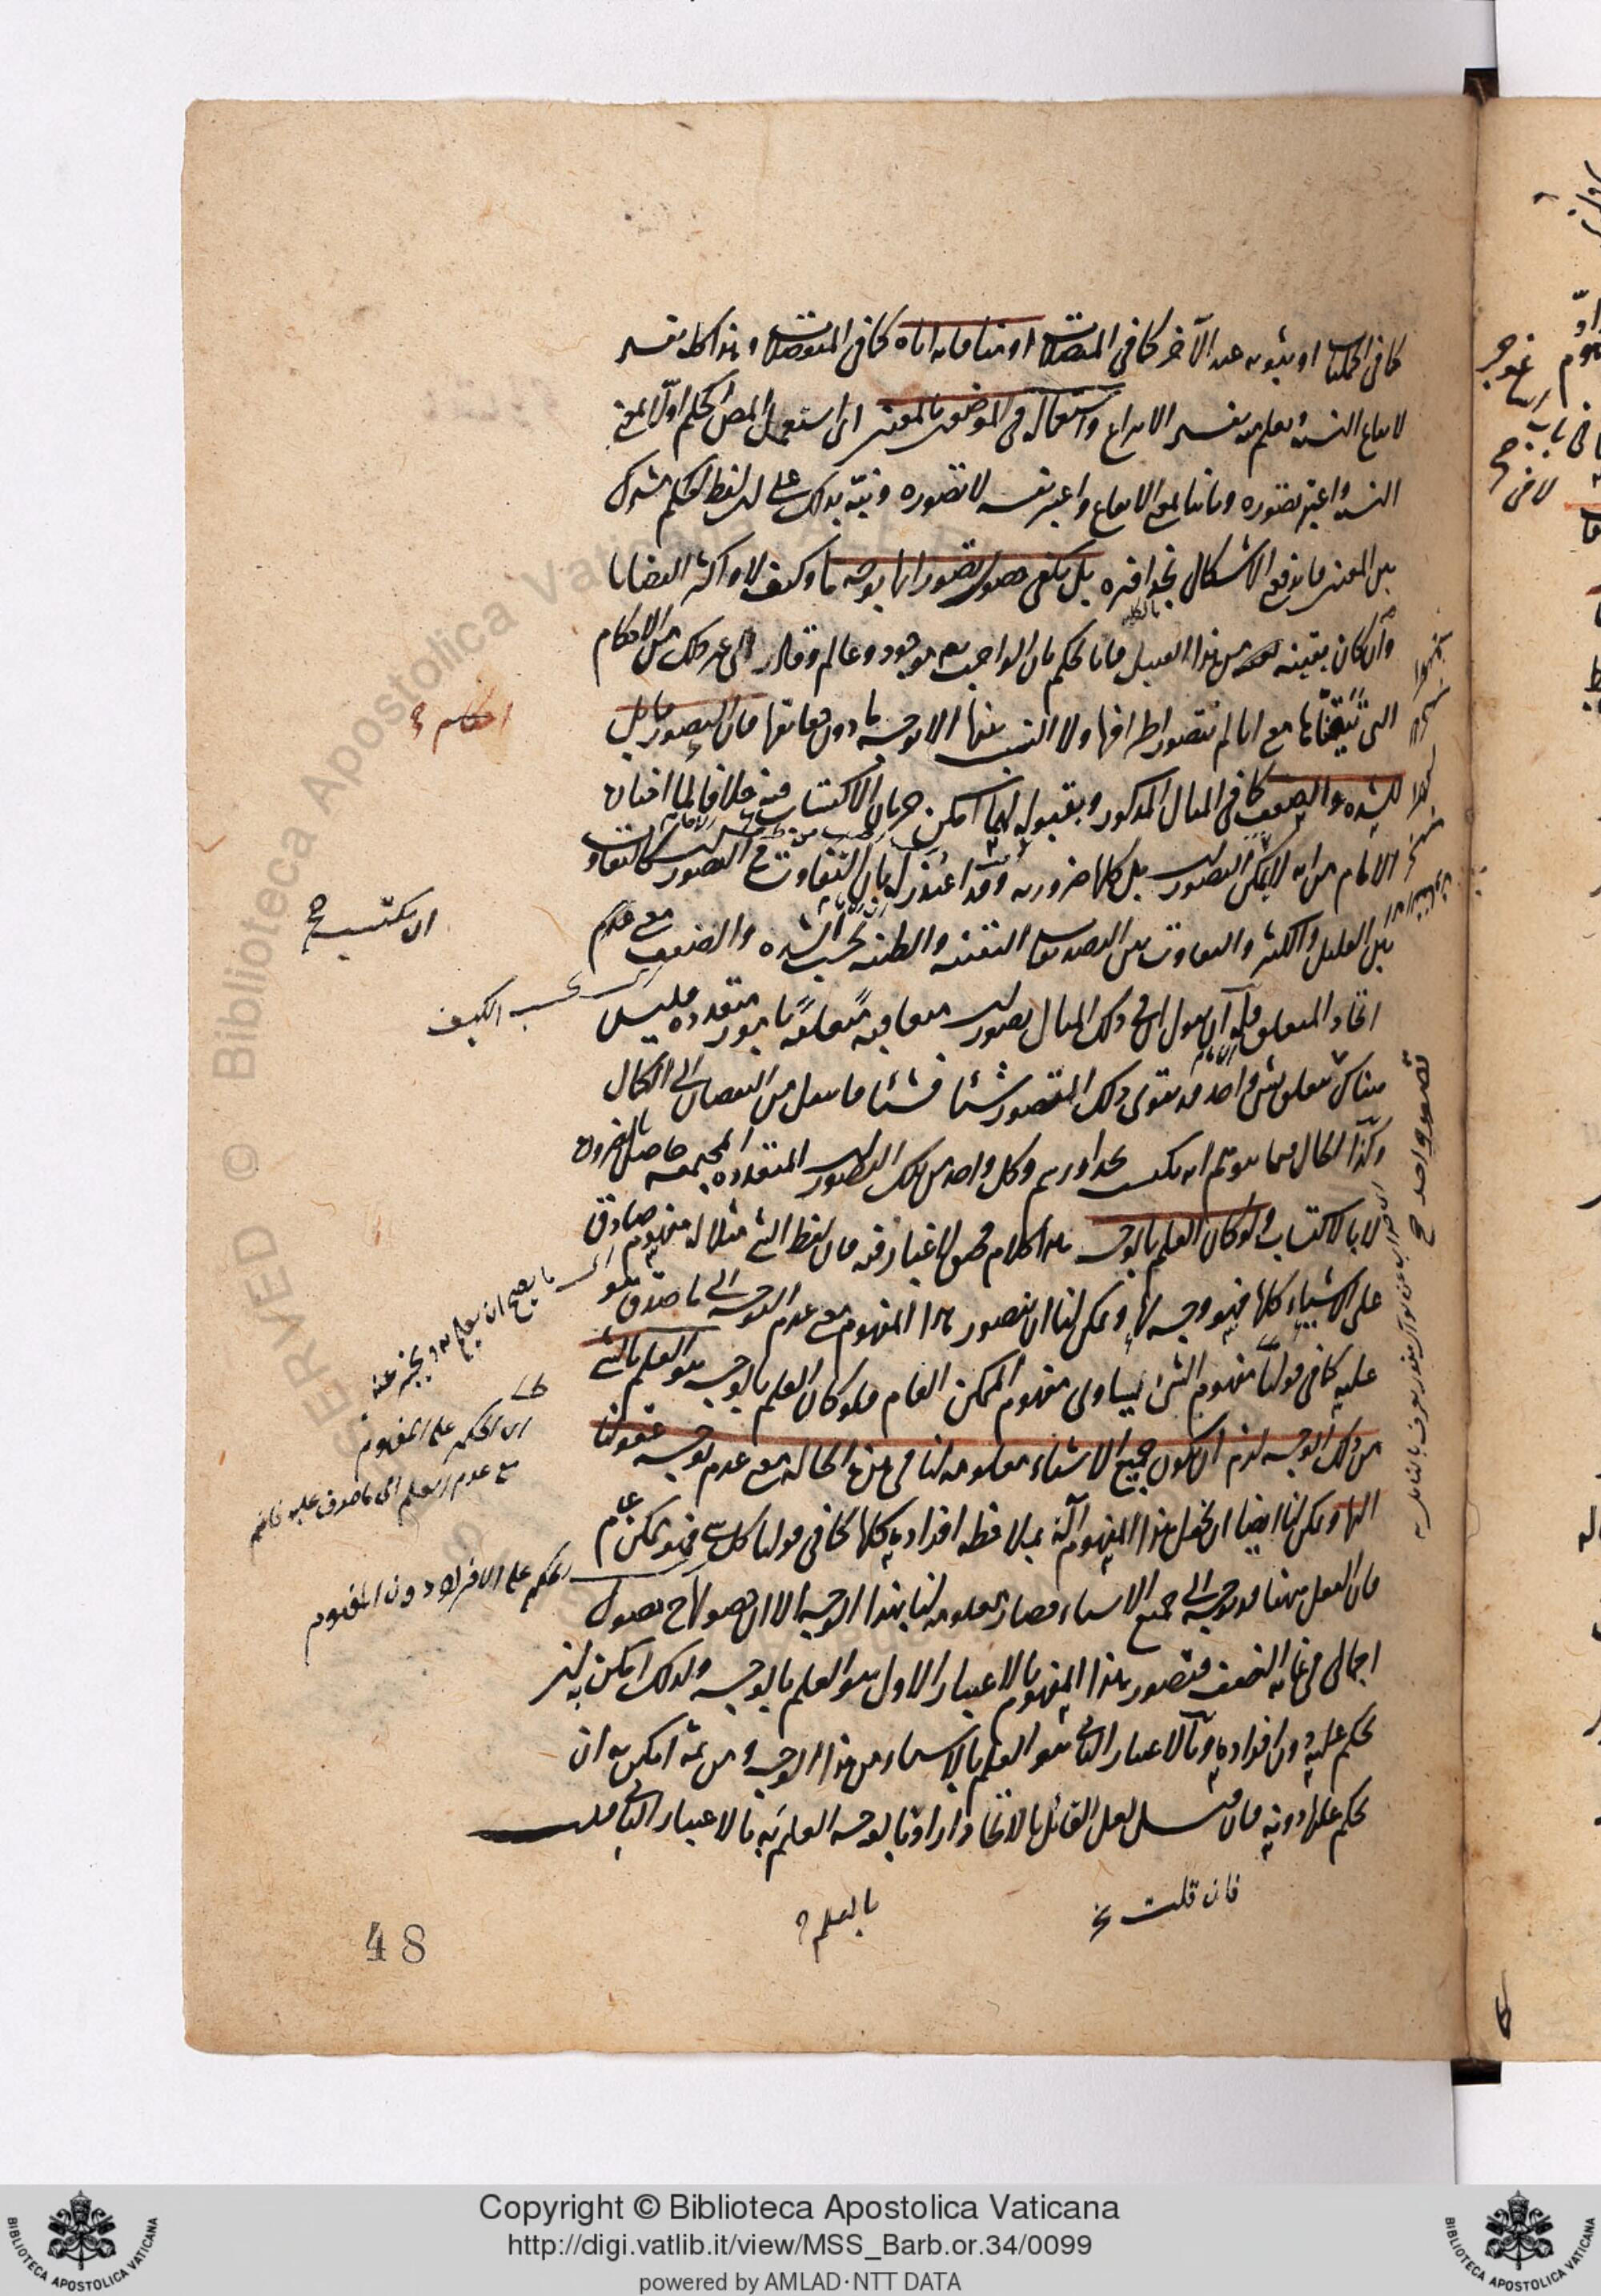 كما في الحمليات او ثبوته عند الآخر كما في المتصلات او منافاته اياه كما في المنفصلات وهذا كله تفسير
لايقاع النسبة ويعلم منه تفسير الانتزاع واستعماله في الموضعين بالمعنيين اى استعمل المص الحكم اولا بمعنى
النسبة واعتبر تصوره وثانيا بمعنى الايقاع واعتبر نفسه لا تصوره ونبّه بذلك على ان لفظ الحكم مشترك
بين المعنيين فاندفع الاشكال بحذافيره بل يكفي حصول تصورها بوجه ما وكيف لا واكثر القضايا
وان كان يقينية من هذا القبيل فانا نحكم بان الواجب تع موجود وعالم وقادر الى غير ذلك من الاحكام
التى تيقناها مع انا لم نتصور اطرافها ولا النسب بينها الا بوجه ما دون حقايقها فان التصور قابل
للشدة والضعف كما في المثال المذكور وبقبوله لهما امكن جريان الاكتساب فيه خلافا لما اختاره
الامام من انه لا يمكن التصورات بل كلها ضرورية وقد اعتذر له بان التفاوت في التصورات كالتفاوت
بين القليل والكثير والتفاوت بين التصديقات اليقينية والظنية بحسب الشدة والضعف مع عدم
اتحاد المتعلق فله ان يقول ان في ذلك المثال تصورات متعاقبة متعلقة بامور متعددة فليس
هناك متعلق بشئ واحد قد يقوى ذلك التصور شيئا فشيئا فانتقل من النقصان الى الكمال
وكذا الحال فيما يتوهم انه مكتسب بحد او رسم وكل واحد من تلك التصورات المتعددة المجتمعة حاصل بالضرورة
لا بالاكتساب ولو كان العلم بالوجه هذا كلام محقق لا غبار فيه فان لفظ الشئ مثلا له مفهوم صادق
على الاشياء كلها فهو وجه لها ويمكن لنا ان نتصور هذا المفهوم مع عدم التوجه الى ما صدق هو
عليه كما في قولنا مفهوم الشئ يساوى مفهوم الممكن العام فلو كان العلم بالوجه هو العلم بالشئ
من ذلك الوجه لزم ان يكون جميع الاشياء معلومة لنا في هذه الحالة مع عدم توجه عقولنا
اليها ويمكن لنا ايضا ان نجعل هذا المفهوم آلة لملاحظة افراده كلها كما في قولنا كل شئ فهو ممكن عام
فان العقل ههنا قد توجه الى جميع الاشياء فصارت معلومة لنا بهذا الوجه الا ان حصولا ح حصول
اجمالى في غاية الضعف فتصور هذا المفهوم بالاعتبار الاول هو العلم بالوجه ولذلك امكن لنا ان
نحكم عليه دون افراده وبالاعتبار الثانى هو العلم بالاشياء من هذا الوجه ومن ثمة امكن به ان
نحكم عليها دونه فان قيل لعل القائل بالاتحاد اراد بالوجه العلم به بالاعتبار الثانى قلت
احكام
اى مكتسب
اى بحسب الكيف
اى ما يصح ان يعلم به ويخبر عنه
اى الحكم على المفهوم
مع عدم العلم الى ما صدق عليه
الحكم على الافراد دون المفهوم
تصور واحد ح
بالعلم
فان قلت خ
48
Copyright © Biblioteca Apostolica Vaticana
http://digi.vatlib.it/view/MSS_Barb.or.34/0099
powered by AMLAD·NTT DATA